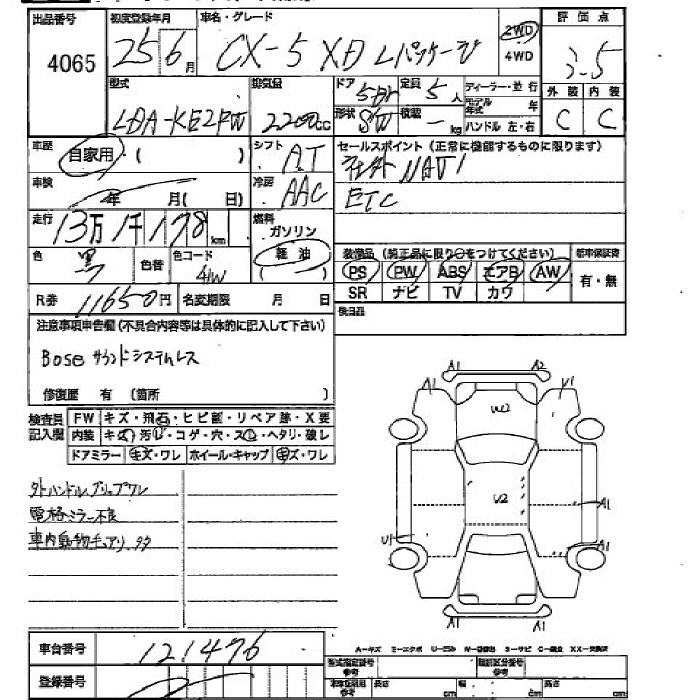 出品番号 4065
初度登録年月 25 6月
車名・グレード CX-5 XD Lパッケージ
2WD 4WD
評価点 3.5
型式 LDA-KE2FW
排気量 2200cc
ドア 5Dr
定員 5人
形状 S/W
積載 - kg
ディーラー・並行
モデル年式 年
ハンドル 左・右
外装 内装
C C
車歴 自家用・( )
シフト AT
セールスポイント(正常に機能するものに限ります)
社外 NAVI
ETC
車検 年 月( 日)
冷房 AAC
走行 13万1千178km
燃料 ガソリン 軽油
色 黒
色替
色コード 41W
装備品(純正品に限り○をつけてください)
PS PW ABS エアB AW
SR ナビ TV カワ
新車保証書 有・無
R券 11650円
名変期限 月 日
後日品
注意事項申告欄(不具合内容等は具体的に記入して下さい)
Bose サウンドシステムレス
修復歴 有 (箇所 )
検査員記入欄
FW キズ・飛石・ヒビ割・リペア跡・X要
内装 キズ・汚れ・コゲ・穴・スレ・ヘタリ・破レ
ドアミラー キズ・ワレ ホイール・キャップ キズ・ワレ
外ハンドルグリップワレ
電格ミラー不良
車内動物毛アリ.
A1 A2
A1 V1
W2
U2
A1
U1 A1
A1 A1
車台番号 121476
登録番号
A-キズ
型式指定番号 参考
類別区分番号 参考
長さ cm 幅 cm cm